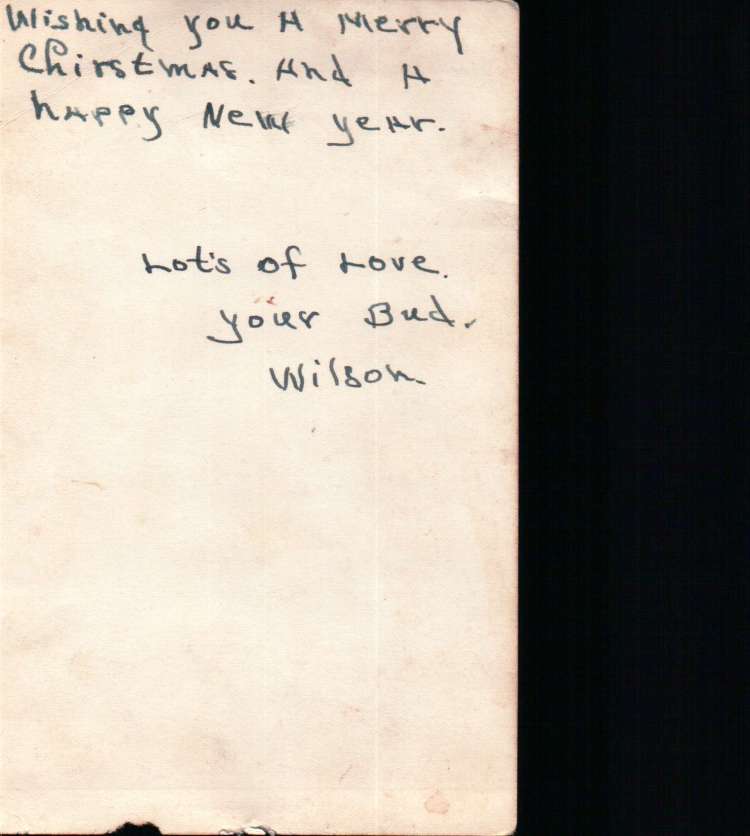 Wishing you A Merry
Chirstmas. And A
happy New year.
Lot's of Love.
your Bud.
Wilson.